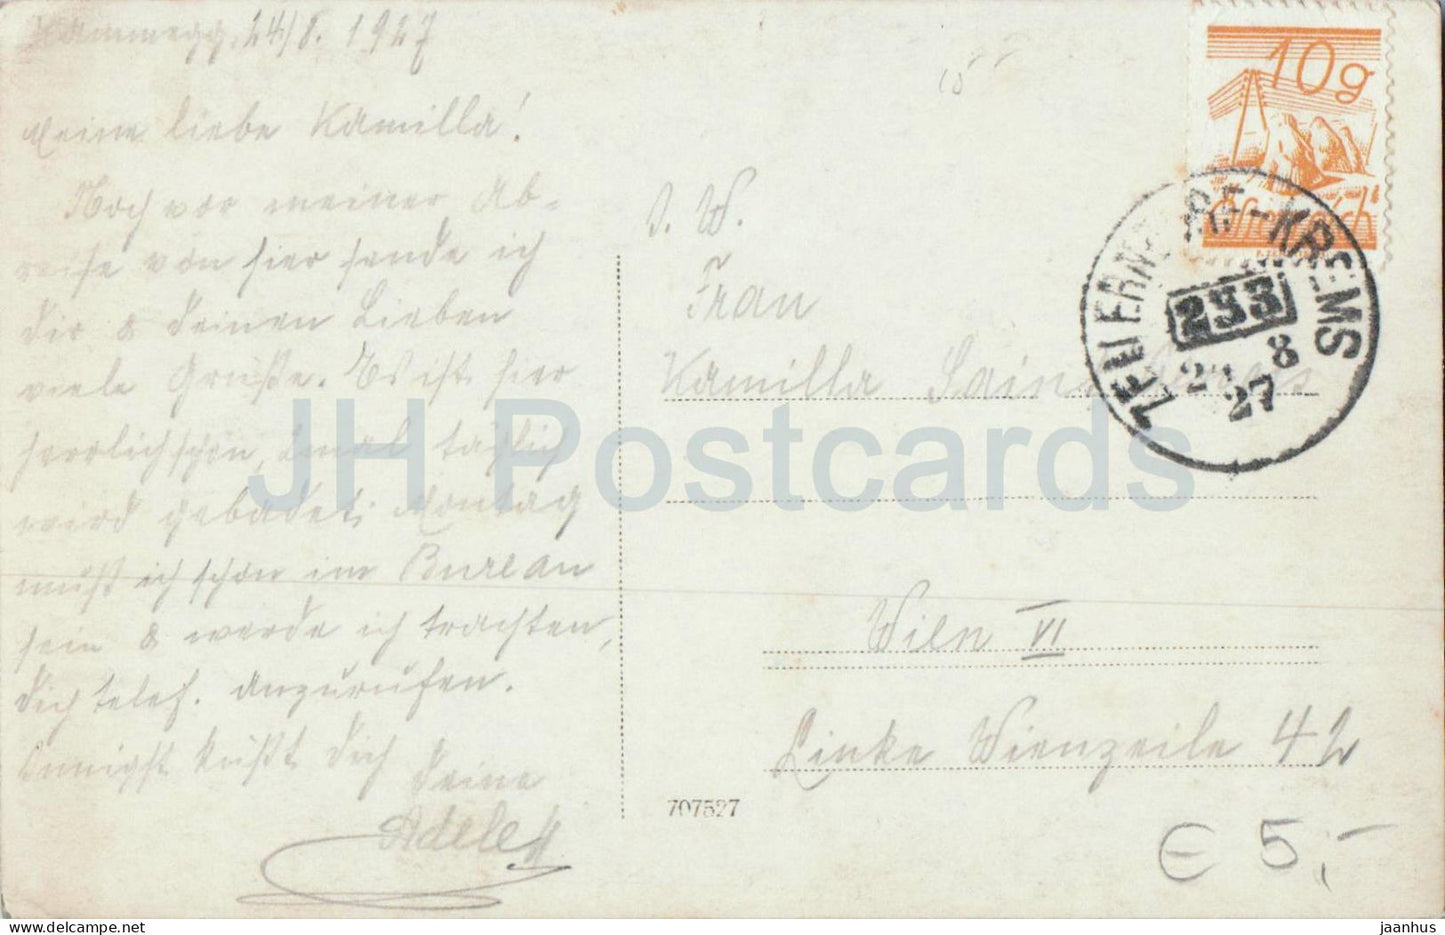 Kammegg, 24/8. 1927
Meine liebe Kamilla!
Noch vor meiner Ab-
reise von hier sende ich
dir & deinen Lieben
viele Grüße. Es ist hier
herrlich schön, 2mal täglich
wird gebadet; Montag
muß ich schon im Bureau
sein & werde ich trachten,
dich telef. anzurufen.
Innigst küßt dich
deine
Adele
10g
Österreich
ZELLERNDORF-KREMS
233
8
27
I. W.
Frau
Kamilla
Wien VI
Linke Wienzeile 42
707527
€ 5,-
JH Postcards
www.delcampe.net
jaanhus